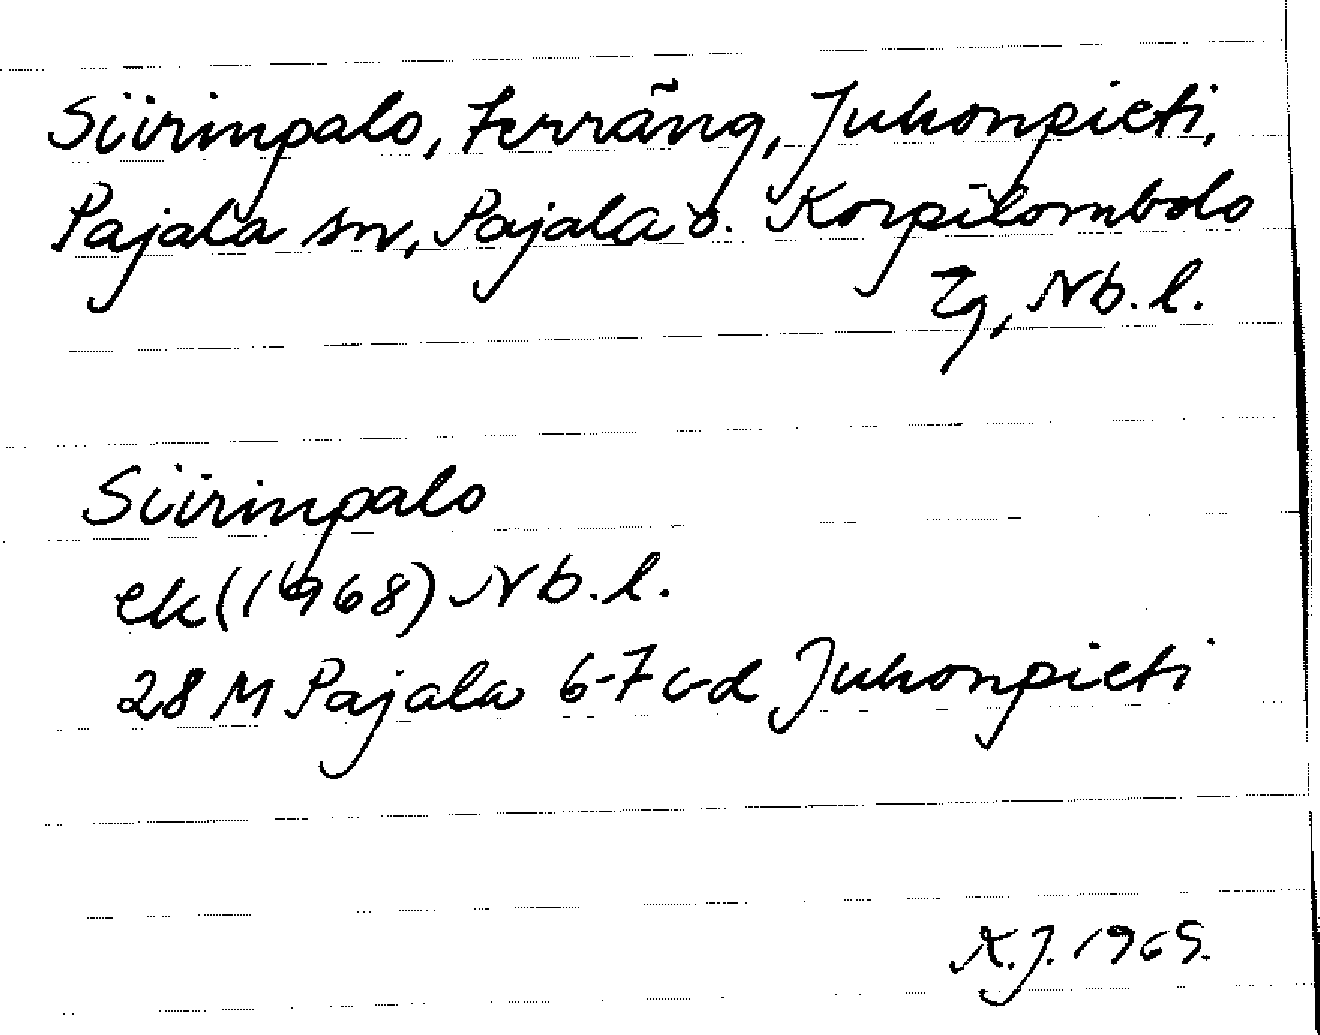 Siirinpalo, terräng, Juhonpieti,
Pajala sn, Pajala o. Korpilombolo
tg, Nb.l.
Siirinpalo
ek(1968) Nb.l.
28 M Pajala 6-7 c-d Juhonpieti
A.J. 1969.